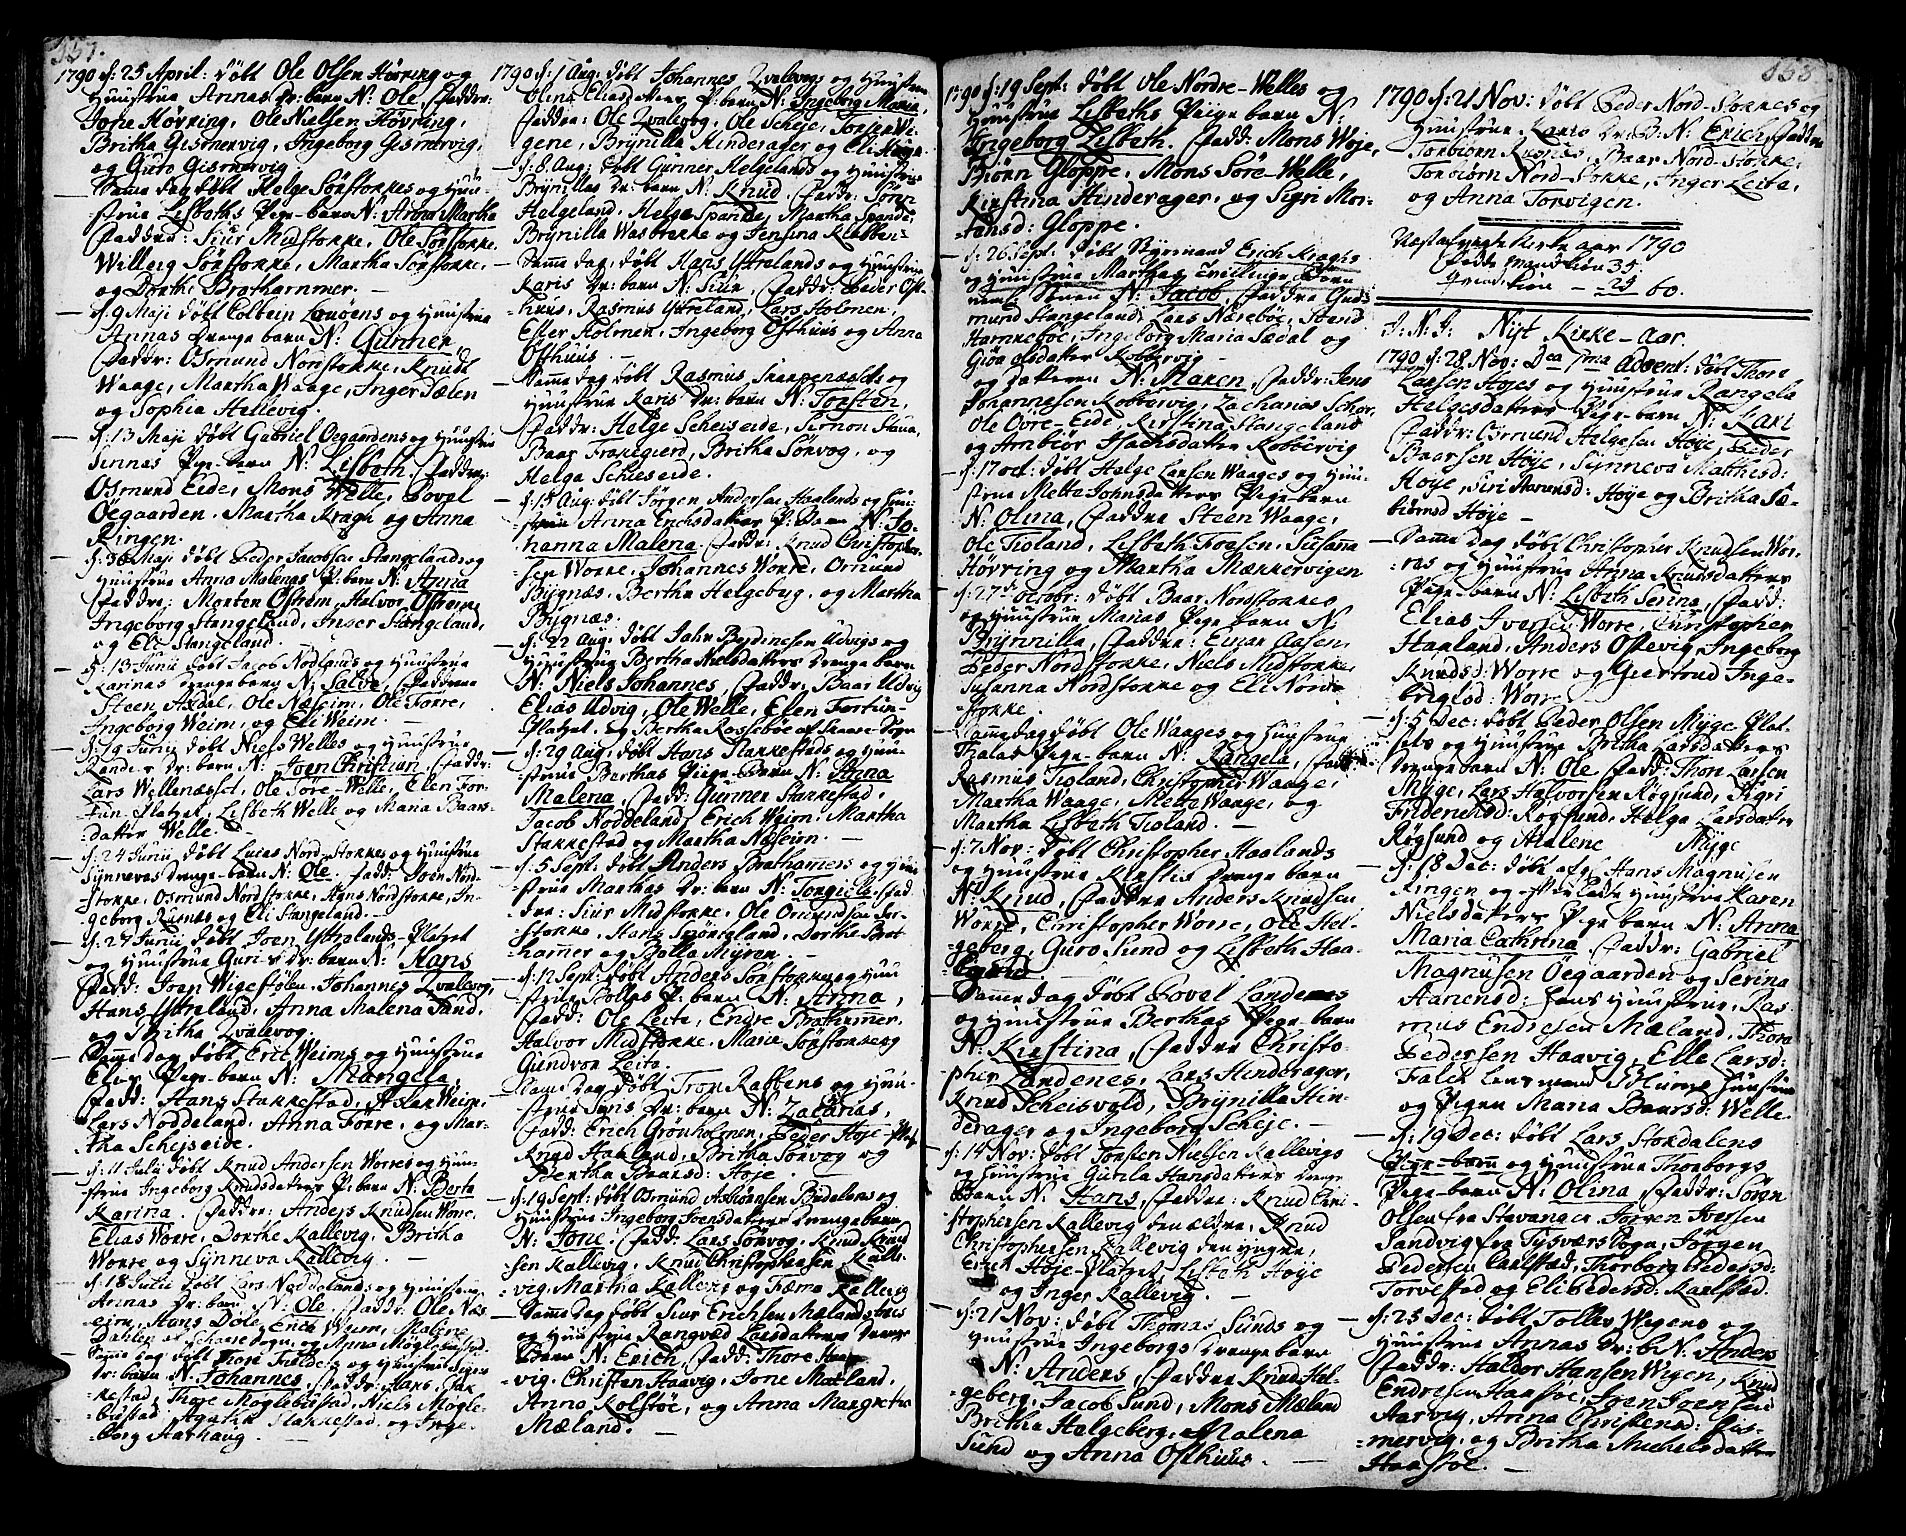 157.
1790 d: 25 April: døbt Ole Olsen Høvring og
Huustrue Annas dr: barn N: Ole, Faddr:
Jone Høvring, Ole Nielsen Høvring,
Britha Gismervig, Ingeborg Gismervig,
og Guro Gismervig
Samme dag døbt Helge Sørstokkes og Huu-
strue Lisbeths Pige-barn N: Anna Martha
Faddre: Siur Midstokke, Ole Sørstokke,
Willerig Sørstokke, Martha Sørstokke,
og Dorthe Brothammer. —
— d: 9 Maji døbt Colbein og Huustrue
Annas Drenge barn N: Gunner
Faddr: Osmund Nordstokke, Knudt
Waage, Martha Waage, Inger Sælen
og Sophia Hellevig.
— d: 13 Maji døbt Gabriel Oegaardens og Huustrue
Sinnas Pige-barn N: Lisbeth, Faddre:
Osmund Eide, Mons Welle, Povel
Oegaarden, Martha Kragh og Anna
Ringen.
— d: 30 Maji døbt Peder Jacobsen Stangelands og
Huustrue Anna Malenas P: barn N: Anna
Faddre: Morten Østrem, Halvor Østrem,
Ingeborg Stangeland, Inger Stangeland,
og Eli Stangeland.
— d: 13 Junii døbt Jacob Nodlands og Huustrue
Karinas Drenge barn N: Salve, Faddrene
Steen Axdal, Ole Næseim, Ole Førre,
Ingeborg Weim, og Eli Weim. —
— d: 19 Junii døbt Niels Welles og Huustrue
Randes Dr: barn N: Joen Christian, Faddr:
Lars Wellenæsset, Ole Søre-Welle, Elen For-
tun-Platzet, Lisbeth Welle og Maria Baars-
datter Welle.
— d: 24 Junii døbt Lucas Nord-Stokkes og Huustrue
Synnevas Drenge-barn N: Ole. Fadd: Joen Nord-
stokke, Osmund Nordstokke, Hans Nordstokke, In-
geborg Rasnes og Eli Stangeland. —
— d: 27 Junii døbt Joen Ytrelands-Platzet
og Huustrue Guris dr: barn N: Hans
Fadd: Joen Wigestølen, Johannes Qvalevog,
Hans Ytreland, Anna Malena Sand,
og Britha Qvalevog.
Samme dag døbt Eric Weims og Huustrue
Elis Pige-barn N: Mangela
Fadd: Hans Stakkestad, Axlak Weim,
Lars Noddeland, Anna Førre, og Mar-
tha Schejseide.
— d: 11 Julii døbt Knud Andersen Worres og Huu-
strue Ingeborg Knudsdatters P: barn N: Berta
Karina. Faddre: Anders Knudsen Worre,
Elias Worre, Dorthe Kallevig, Britha
Worre og Synneva Kallevig. —
— d: 18 Julii døbt Lars Noddelands og Huustrue
Annas Dr: barn N: Ole. Faddr: Ole Næs-
eim, Hans Dole, Eric Weim, Malene
Dahlen af Schaare Sogn, og Anna Møglebustad.
Samme dag døbt Thore og Huustrue Sigris
dr: barn N: Johannes, Faddre: Hans Stak-
kestad, Thore Møglebustad, Niels Møgle-
bustad, Agatha Stakkestad, og Inge-
borg Aarhaug. —
1790 d: 1 Aug: døbt Johannes Qvalevogs og Huustrue
Olina Eliasdatters P: barn N: Ingeborg Maria,
Faddre: Ole Qvalevog, Ole Scheje, Torsten Wi-
gene, Brynilla Hinderager og Eli
d: 8 Aug: døbt Gunner Helgelands og Huustrue
Brynillas Dr: barn N: Knud, Faddr: Søren
Helgeland, Helge Spanne, Martha Spande,
Brynilla Wasbrekke og Jensina Klubben—
— Samme dag døbt Hans Ytrelands og Huustrue
Karis Dr: barn N: Siur, Faddre: Peder Ost-
huus, Rasmus Ytreland, Lars Holmen,
Ester Holmen, Ingeborg Osthuus og Anna
Osthuus. —
— Samme dag døbt Rasmus og
Huustrue Karis Dr: barn N: Torsten,
Faddr: Helge Scheiseide, Simon
Baar Frakegierd, Britha Sørvog, og
Helga Schieseide.
— d: 15 Aug: døbt Jørgen Andersen Haalands og Huu-
strue Anna Erichsdatters P: Barn N: Jo-
hanna Malena. Faddr: Knud Christopher-
sen Worre, Johannes Worre, Ormund
Bygnæs, Bertha Helgeberg, og Martha
Bygnæs.
— d: 22 Aug: døbt Jahn Berdinesen Udvigs og
Huustrue Bertha Nielsdatters Drenge barn
N: Niels Johannes, Faddr: Baar Udvig
Elias Udvig, Ole Welle, Elen Fortun-
Platzet, og Bertha Rossebøe af Skaare-Sogn
— d: 29 Aug: døbt Hans Stakkestads og Huu-
strue Berthas Pige-Barn N: Anna
Malena, Fadd: Gunner Stakkestad,
Jacob Noddeland, Erich Weim, Martha
Stakkestad og Martha Næseim. —
— d: 5 Sept: døbt Anders Brothamers og Huu-
strue Marthas Dr: barn N: Torgiels, Fad-
dre: Siur Midstokke, Ole Osmundsen Sør-
stokke, Hans Spønneland, Dorthe Brot-
hammer og Bolla Myren. —
— d: 12 Sept: døbt Anders Sørstokkes og Huu-
strue Bolles P: barn N: Anna,
Fadd: Ole Leite, Endre Brothammer,
Halvor Midstokke, Marie Sørstokke og
Gundvor Leite.
— Samme Dag døbt Tron Rabbens og Huu-
strue Dr: barn N: Zacarias,
Fadd: Erich Grønholmen, Peder Høje-Platz
Knud Haaland, Britha Sørvog og
Bertha Baarsd: Høje.
— d: 19 Sept: døbt Osmund og
Huustrue Ingeborg Joensdatters Drenge barn
N: Jone. Fadd: Lars Sørvog, Knud Knud-
sen Kallevig, Knud Christophersen Kalle-
vig, Martha Kallevig og Færna Kallevig
— Samme dag døbt Siur Erichsen Mælands
og Huustrue Rangvæd Larsdatters Drenge
Barn N: Erich, Fadd: Thore Haa-
vig, Christen Haavig, Jone Mæland,
Anna Kolstøe, og Anna Margreta
Mæland. —
158
1790 d: 19 Sept: døbt Ole Nordre-Welles og
Huustrue Lisbeths Pige barn N:
Ingeborg Lisbeth. Fadd: Mons Woje,
Biørn Gloppe, Mons Søre-Welle,
Kirstina Hinderager, og Sigri Mor-
tensd: Gloppe.
— d: 26 Sept: døbt Byemand Erich Kraghs
og Huustrue Marthas Tvillinge Børn
nem: Sønnen N: Jacob, Faddre Gud-
mund Stangeland, Lars Næsebøe,
Hamnebøe, Ingeborg Maria Sædal og
Giøa Olsdatter Kobbervig —
og Datteren N: Maren, Faddr: Jens
Johannesen Kobbervig, Zacharias
Ole Øvre-Eide, Kirstina Stangeland
og Anbiør Isachsdatter Kobbervig
— d: 17 Oct: døbt Helge Larsen Waages og Huu-
strue Mette Johnsdatters Pige-barn
N: Olina, Faddre Steen Waage,
Ole Tioland, Lisbeth Susanna
Høvring og Martha Mækkervigen
d: 27de Octobr: døbt Baar Nordstokkes
og Huustrue Marias Pige barn N:
Brynnilla, Faddre: Einar Aasen,
Peder Nordstokke, Niels Midstokke,
Susanna Nordstokke og Eli Nord-
stokke.
— Samme dag døbt Ole Waages og Huustrue
Pige-barn N: Rangela, Fadd:
Rasmus Tioland, Christopher Waage,
Martha Waage, Mette Waage, og
Martha Lisbeth Tioland. —
— d: 7 Nov: døbt Christopher Haalands
og Huustrue Kirstis Drenge barn
N: Knud, Faddre Anders Knudsen
Worre, Christopher Worre, Ole Hel-
geberg, Guro Sund og Lisbeth Haa-
land
— Samme dag døbt Povel Landenes
og Huustrue Berthas Pige-barn
N: Kirstina, Faddre Christo-
pher Landenes, Lars Hinderager,
Knud Scheisvold, Brynilla Hin-
derager og Ingeborg Scheje. —
— d: 14 Nov: døbt Torsten Nielsen Kallevigs
og Huustrue Gunila Hansdatters Drenge
Barn N: Hans, Faddre: Knud Chri-
stophersen Kallevig den ældre, Knud
Christophersen Kallevig den yngre,
Høje-Platzet, Lisbeth Høje
og Inger Kallevig. —
— d: 21 Nov: døbt Thomas Sunds og
Huustrue Ingeborgs Drenge barn
N: Anders, Faddre Knud Hel-
geberg, Jacob Sund, Mons Mæland
Britha Helgeberg, Malena
Sund og Anna Osthuus. —
1790 d: 21 Nov: døbt Peder Nord-Stokkes og
Huustrue Karis Dr: B: N: Erich, Faddre
Torbiørn Rasnes, Baar Nord-Stokke,
Torbiørn Nord-Stokke, Inger Leite,
og Anna Torvigen.
Næstafvigte Kirke aar 1790
fødde Mandkiøn 35.
Qvindekiøn — 25 60.
I. N. J: Nyt Kirke-Aar.
1790 d: 28 Nov: Dca 1ma Advent: døbt Thore
Larsen Høyes og Huustrue Rangela
Helgesdatters Pige-barn N: Kari
Faddr: Osmund Helgesen Høje, Peder
Baarsen Høje, Synneva Mathisd:
Høye, Siri Aanensd: Høye og Britha Tor-
biørnsd Høye —
— Samme dag døbt Christopher Knudsen Wor-
res og Huustrue Anna Knudsdatters
Pige-barn N: Lisbeth Serina, Fadd:
Elias Iversen Worre, Christopher
Haaland, Anders Ostevig, Ingeborg
Knudsd: Worre og Giertrud Inge-
brigtsd: Worre —
— d: 5 Dec: døbt Peder Olsen Myge-Plat-
sets og Huustrue Britha Larsdatters
Drenge barn N: Ole Fadd: Thore Larsen
Myge, Lars Halvorsen Røgsund, Sigri
Fridenensd: Røgsund, Helga Larsdatter
Røgsund og Malene Myge
— d: 18 Dec: døbt afg: Hans Magnusen
Ringen og Huustrue Karen
Nielsdatters Pige barn N: Anna
Maria Cathrina, Fadd: Gabriel
Magnusen Oegaarden og Serina
Aanensd: hans Huustrue, Ras-
mus Endresen Mæland, Thora
Pedersen Haavig, Elle Larsd:
Falck Lensmand Huustrue
og Pigen Maria Baarsd: Welle.
— d: 19 Dec: døbt Lars Stordalens
Pige-barn og Huustrue Thorborgs
Pige-barn N: Olina, Fadd: Søren
Olsen fra Stavanger, Jørgen Iversen
Sandvig fra Tysvær Sogn, Jørgen
Pedersen Carlstad, Thorborg Pedersd:
Torvestad og Eli Pedersd: Karlstad.
— d: 25 Dec: døbt Tollev Wigens og
Huustrue Annas Dr: b: N: Anders
Faddr: Haldor Hansen Wigen, Knud
Endresen Haasøe, Joen Joensen
Aarvig, Anna Christensd: Gis-
mervig, og Britha Michelsdatter
Haasøe. —